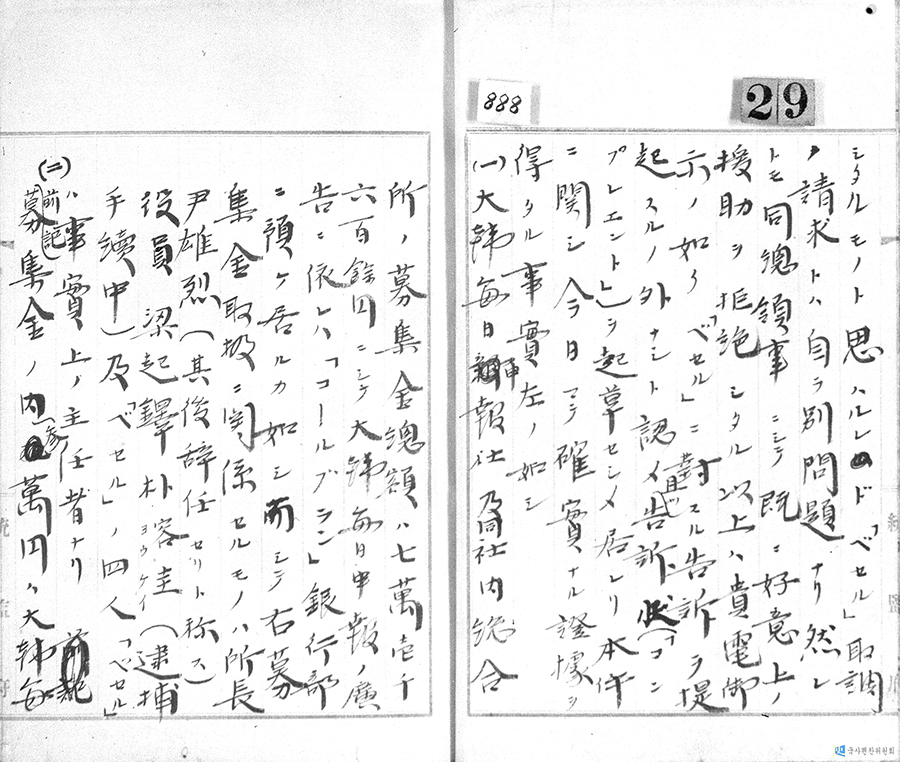 29
888
シタルモノト思ハルレド「ベセル」取調
ノ請求トハ自ラ別問題ナリ然レ
トモ同總領事ニシテ既ニ好意上ノ
援助ヲ拒絶シタル以上ハ貴電御
示ノ如ク「ベセル」ニ對スル告訴ヲ提
起スルノ外ナシト認メ告訴状(コン
プレエント)ヲ起草セシメ居レリ本件
ニ関シ今日マテ確實ナル證據ヲ
得タル事實左ノ如シ
(一)大韓每日申報社及同社内總合
所ノ募集金總額ハ七萬壱千
六百餘円ニシテ大韓每日申報ノ廣
告ニ依レハ「コールブラン」銀行部
ニ預ケ居ルカ如シ而シテ右募
集金取扱ニ関係セルモノハ所長
尹雄烈(其後辞任セリト称ス)
役員梁起鐸朴容圭(逮捕
ヨウケイ
手續中)及「ベセル」ノ四人「ベセル」
ハ事實上ノ主任者ナリ
(二)前記募集金ノ内萬円ハ大韓每
統監府
統監府
국사편찬위원회